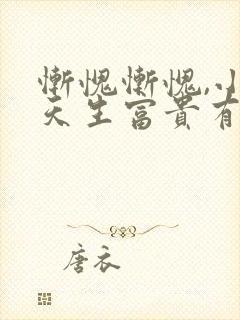 慚愧慚愧,小
天生富貴有
唐衣